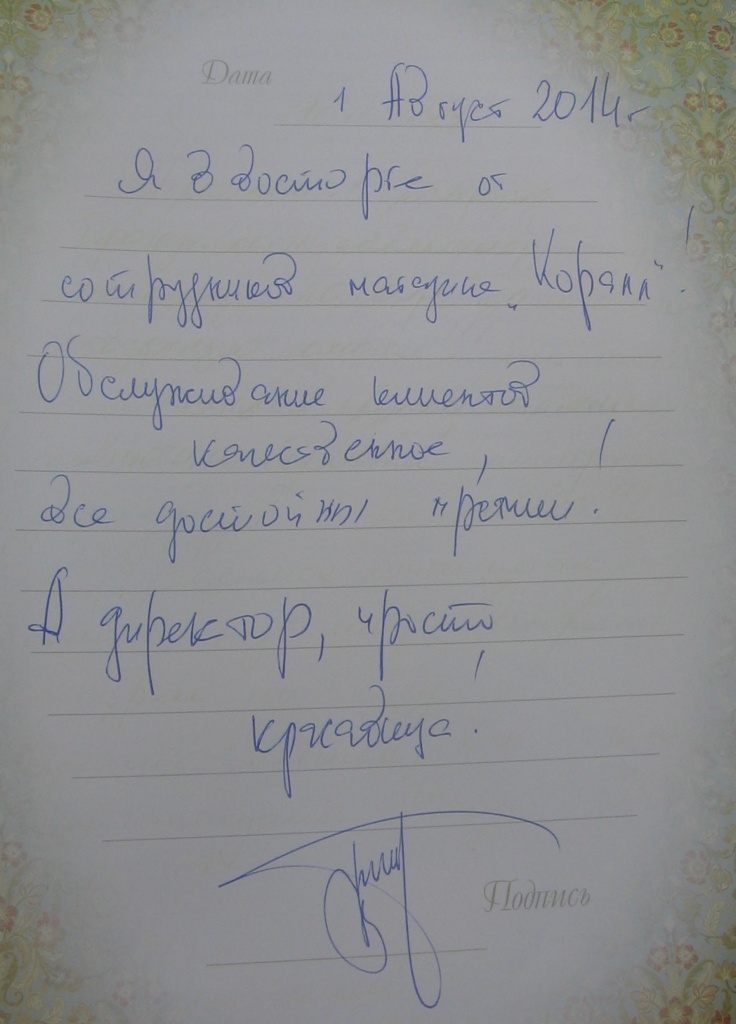 Дата
1 Август 2014г
Я в восторге от
сотрудников магазина „Коралл"!
Обслуживание клиентов
качественное,
все достойны премии!
А директор, просто
красавица!
Подпись